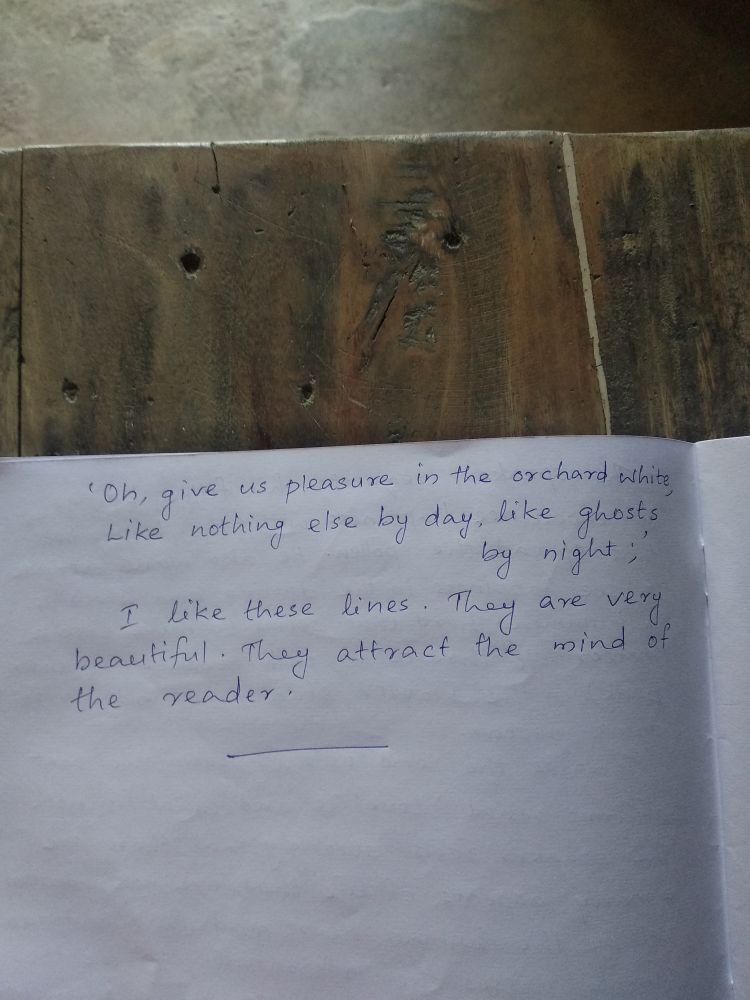 'Oh, give us pleasure in the orchard white,
Like nothing else by day, like ghosts
by night;'
I like these lines. They are very
beautiful. They attract the mind of
the reader.